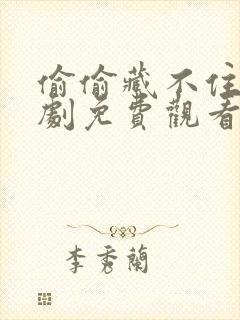 偷偷藏不住
劇免費觀看
李秀蘭